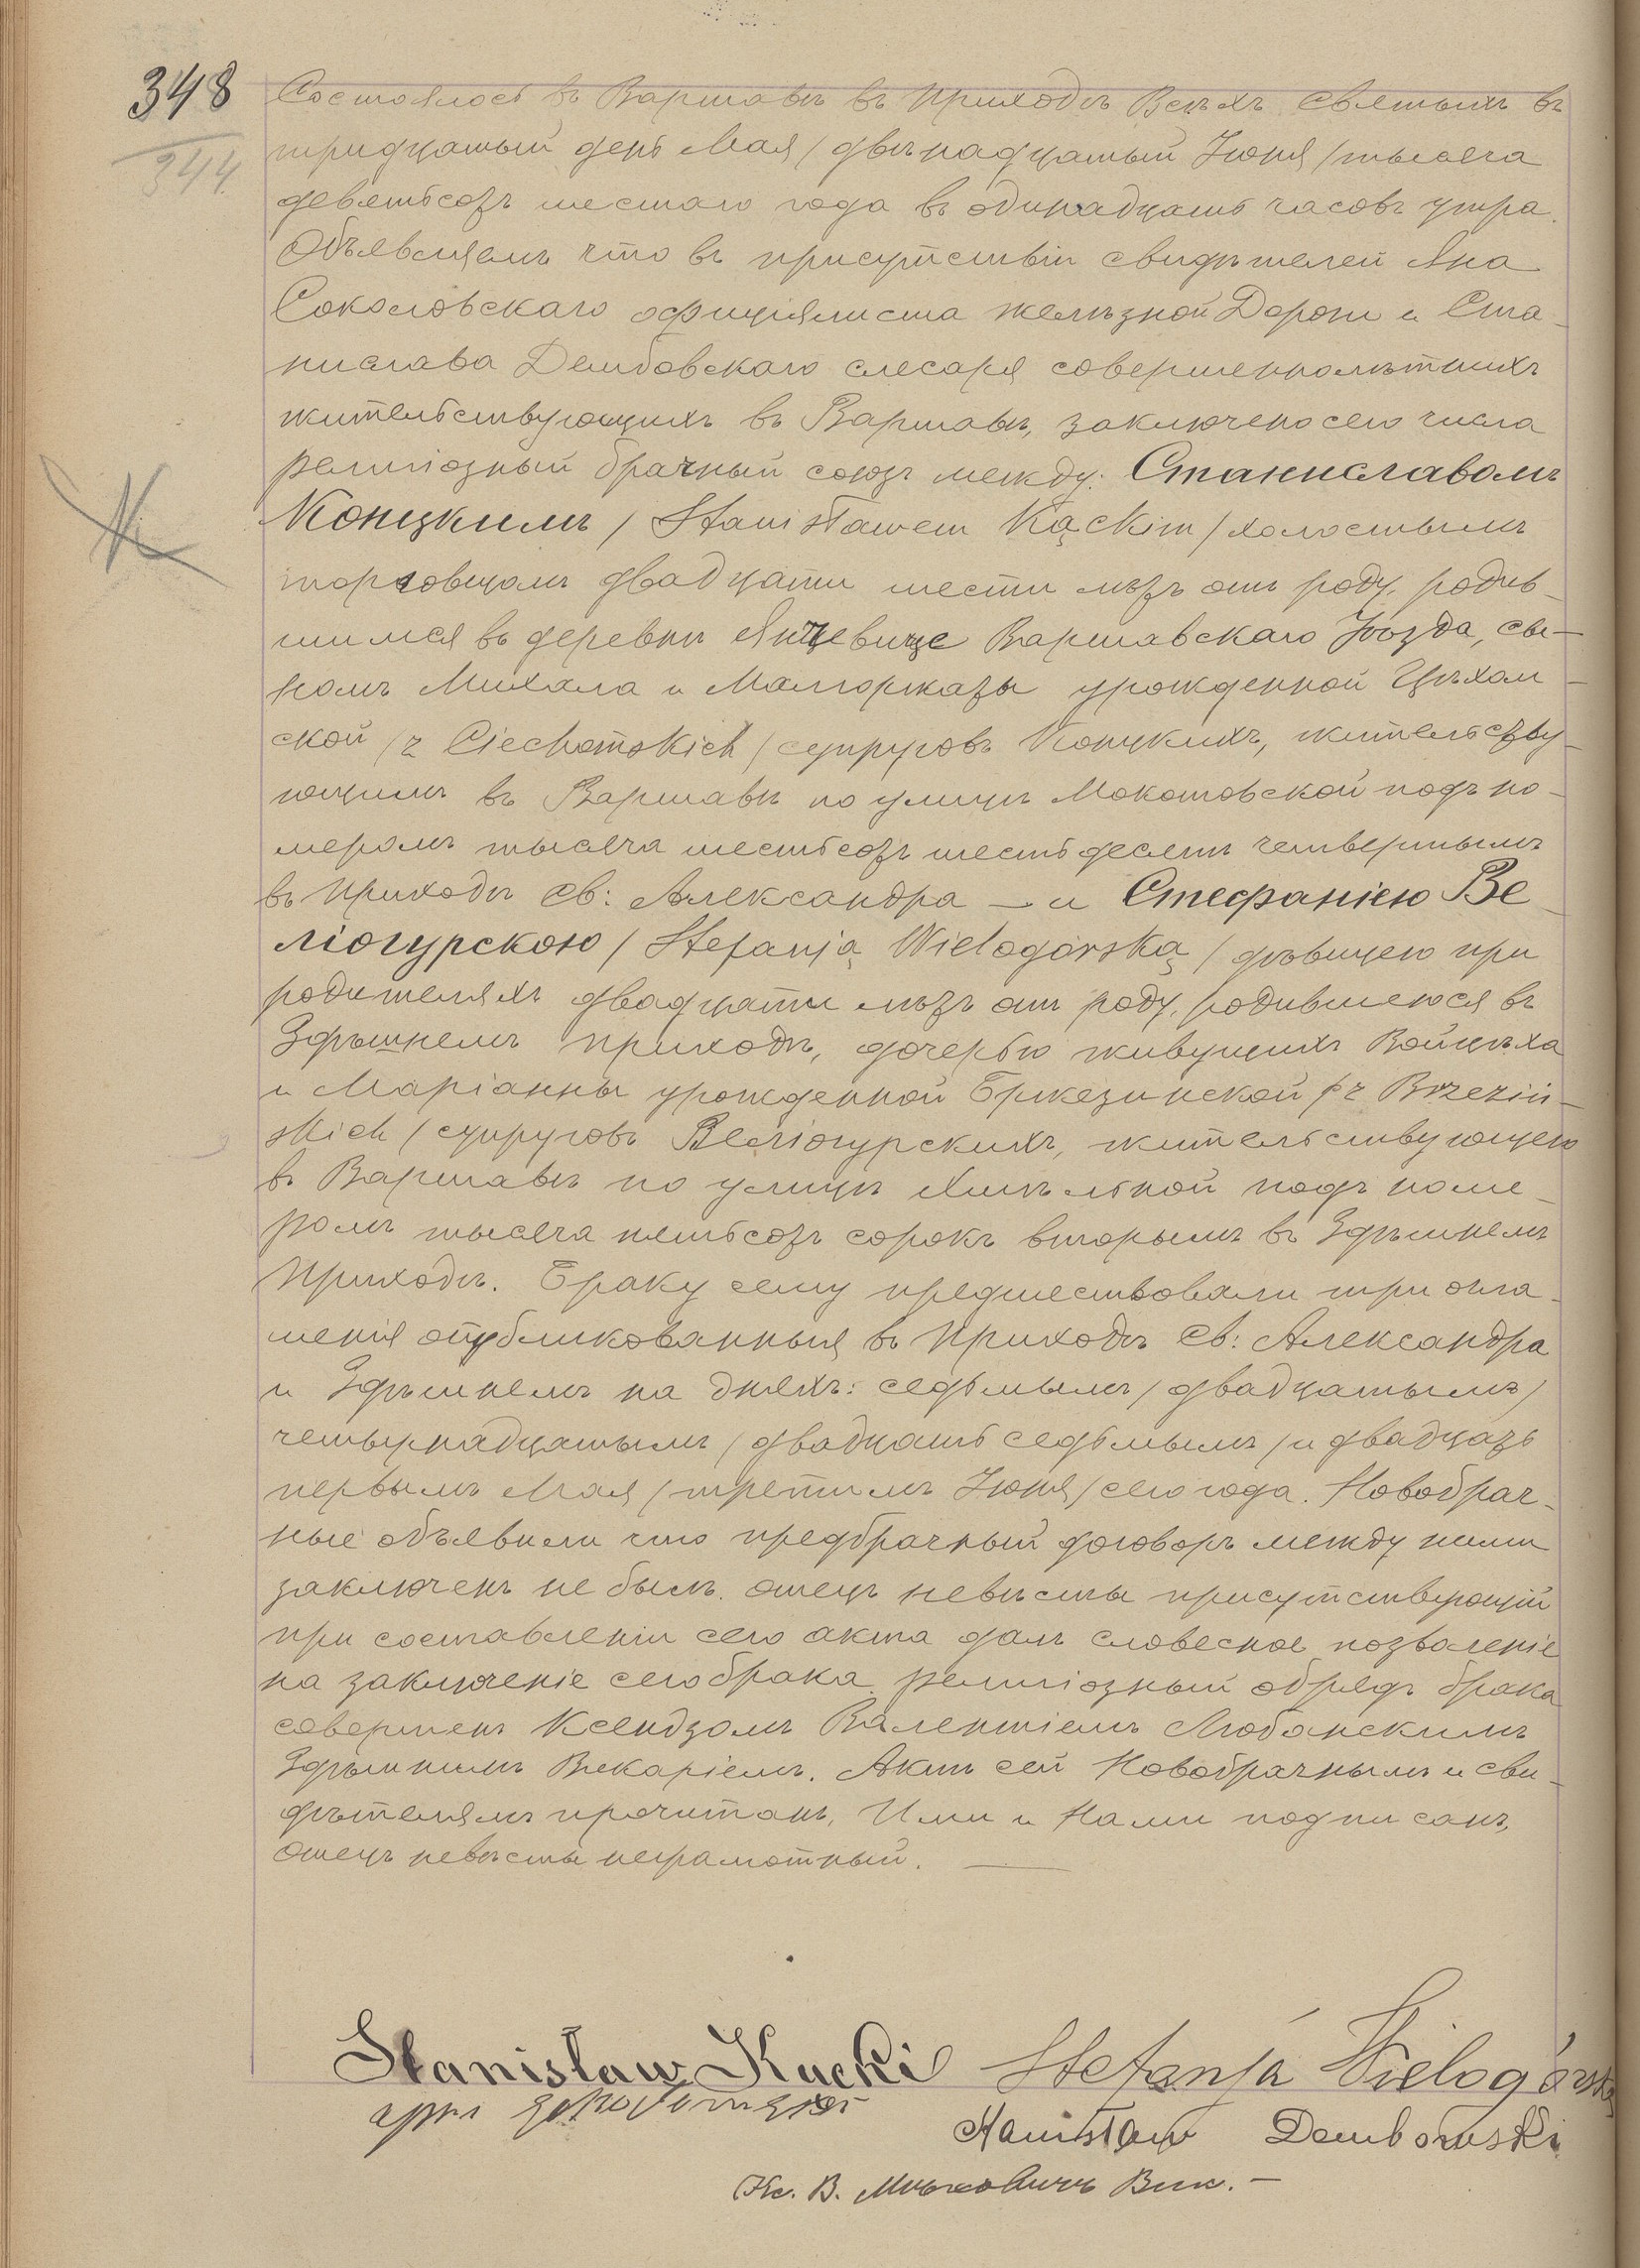 348
344
Состоялось въ Варшавѣ въ приходѣ Всѣхъ святыхъ въ
тридцатый день Мая / двѣнадцатый Іюня / тысяча
девятьсотъ шестаго года въ одинадцать часовъ утра.
Объявляемъ что въ присутствіи свидѣтелей Яна
Соколовскаго оффиціялиста желѣзной Дороги и Ста-
нислава Дембовскаго слесаря совершеннолѣтнихъ
жительствующихъ въ Варшавѣ, заключено сего числа
религіозный брачный союзъ между: Станиславомъ
Концкимъ / Stanisławem Kąckim / холостымъ
торговцомъ двадцати шести лѣтъ отъ роду, родив-
шимся въ деревни Янчевице Варшавскаго Уѣзда, сы-
номъ Михала и Малгоржаты урожденной Цѣхом-
ской / z Ciechomskich / супруговъ Концкихъ, жительству-
ющимъ въ Варшавѣ по улицѣ Мокотовской подъ но-
меромъ тысяча шестьсотъ шестьдесятъ четвертымъ
въ приходѣ Св: Александра — и Стефаніею Ве-
ліогурскою / Stefanją Wielogórską / дѣвицею при
родителяхъ двадцати лѣтъ отъ роду, родившеюся въ
Здѣшнемъ приходѣ, дочерью живущихъ Войцѣха
и Маріанны урожденной Бржезинской / z Brzeziń-
skich / супруговъ Веліогурскихъ, жительствующею
въ Варшавѣ по улицѣ Хмѣльной подъ номе-
ромъ тысяча пятьсотъ сорокъ вторымъ въ Здѣшнемъ
приходѣ. Браку сему предшествовали три огла-
шенія опубликованныя въ приходѣ Св: Александра
и Здѣшнемъ на дняхъ: седьмымъ / двадцатымъ /
четырнадцатымъ / двадцать седьмымъ / и двадцать
первымъ Мая / третимъ Іюня / сего года. Новобрач-
ные объявили что предбрачный договоръ между ними
заключенъ не былъ. отецъ невѣсты присутствующій
при составленіи сего акта далъ словесное позволеніе
на заключеніе сего брака. религіозный обрядъ брака
совершенъ Ксендзомъ Валентіемъ Любанскимъ
Здѣшнимъ Викаріемъ. Актъ сей Новобрачнымъ и сви-
дѣтелямъ прочитанъ, Ими и Нами подписанъ,
Отецъ невѣсты неграмотный.
Stanisław Kącki Stefanja Wielogórska
Stanisław Dembowski
Кс. В. Вик. —